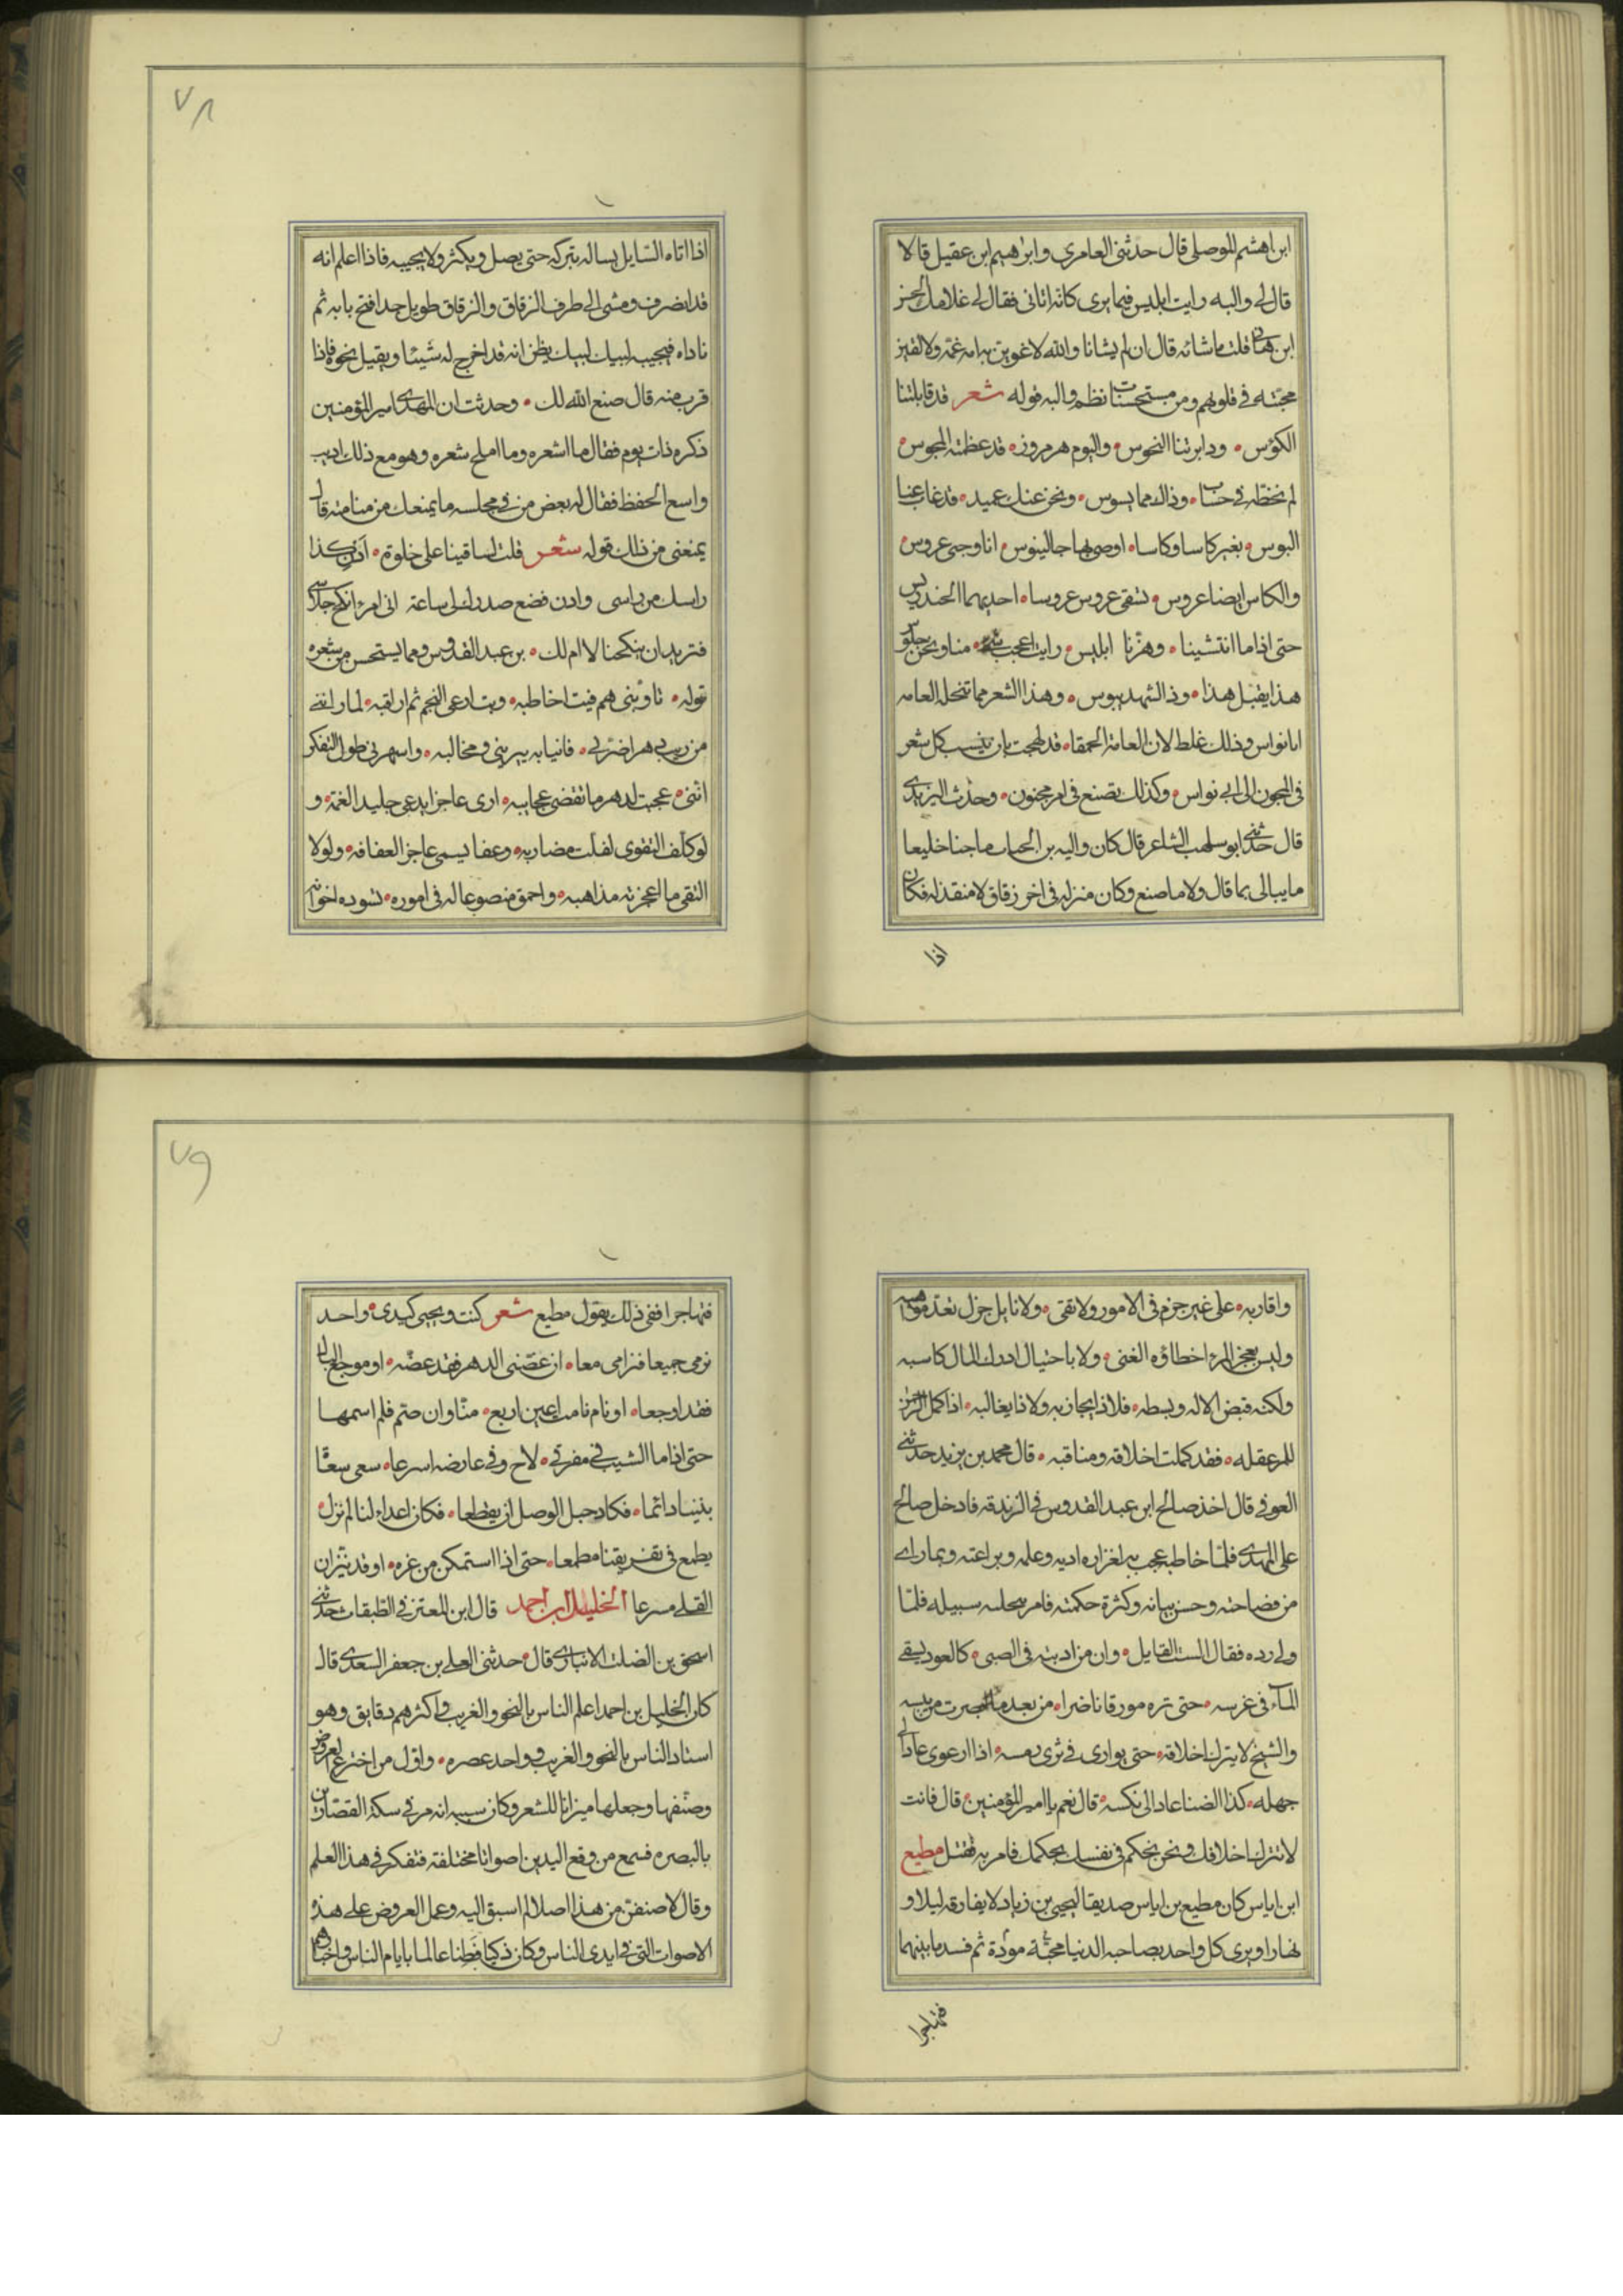 ابن اهشم الموصلى قال حدثنى العامري وابرٰهيم ابن عقيل قالا
قال لى والبه رايت ابليس فيما يرى كانه اتانى فقال لى غلامك الحسن
ابن هانى قلت ما شانه قال ان لم يشانا والله لاغوين به امه غمة ولالقين
محبته فى قلوبهم ومن مستحسنات نظم والبه قوله شعر قد قابلتنا
الكؤس • ودابرتنا النحوس • واليوم هرمروز • قد عظمته المجوس •
لم نخطه فى حساب • وذاك مما يسوس • ونحن عند عميد • قد غاب عنا
البوس • بغير كاسا وكاسا • اوصى بها جالينوس • انا وجبى عروس •
والكاس ايضا عروس • تسقى عروس عروسا • احديهما الخندريس
حتى اذا ما انتشينا • وهزنا ابليس • رايت اعجب شئ • منا ونحن جلوس
هذا يقبل هذا • وذا لشهد يبوس • وهذا الشعر مما تنحل العامه
ابا نواس وذلك غلط لان العامة الحمقا • قد لهجت بان تنسب كل شعر
فى المجون الى ابى نواس • وكذلك تصنع فى امر مجنون • وحدث اليزيدى
قال حدثنى ابو سلهب الشاعر قال كان واليه بن الحباب ماجنا خليعا
ما يبالى بما قال ولا ما صنع وكان منزله فى اخر زقاق لا منفذ له فكان
اذا
٧٨
اذا اتاه السايل يساله يتركه حتى يصل ويكثر ولا يجيبه فاذا اعلم انه
قد انصرف ومشى الى طرف الزقاق والزقاق طويل جدا فتح بابه ثم
ناداه فيجيب لبيك لبيك يظن انه قد اخرج له شيئا ويقبل نحوه فاذا
قرب منه قال صنع الله لك • وحدثت ان المهدى امير المؤمنين
ذكره ذات يوم فقال ما اشعره وما املح شعره وهو مع ذلك اديب
واسع الحفظ فقال له بعض من فى مجلسه ما يمنعك من منادمته قال
يمنعنى من ذلك قوله شعر قلت لساقينا على خلوة • ادن كذا
راسك من راسى وادن فضع صدرك لى ساعة انى امرء انكح جلاسى
فتريد ان ينكحنا لا ام لك • بن عبد القدوس ومما يستحسن من شعره
قوله • تاوبنى هم فبت اخاطبه • وبت ارعى النجم ثم اراقبه • لما رابنى
من ريب دهر اضربى • فانيابه يبرينى ومخالبه • واسهرنى طول التفكر
اننى • عجبت لدهر ما تقضى عجايبه • ارى عاجزا يدعى جليد الغمة • و
لو كلف التقوى لفلت مضاربه • وعفا يسمى عاجز العفافه • ولولا
التقى ما اعجزته مذاهبه • واحمق منصوعا له فى اموره • تسوده اخوانه
واقاربه • على غير جزم فى الامور ولا تقى • ولا نايل جزل تعد مواهبه
وليس بعجز المرء اخطاؤه الغنى • ولا باحتيال ادرك المال كاسبه
ولكنه قبض الاله وبسطه • فلا ذا يجازبه ولا ذا يغالبه • اذا كمل الرحمن
للمرء عقله • فقد كملت اخلاقه ومناقبه • قال محمد بن يزيد حدثنى
العوفى قال اخذ صالح ابن عبد القدوس فى الزندقه فادخل صالح
على المهدى فلما خاطبه عجب به لغزاره ادبه وعلمه وبراعته وبما راى
من فصاحته وحسن بيانه وكثرة حكمته فامر بتخليه سبيله فلما
ولى رده فقال الست القايل • وان من ادبته فى الصبى • كالعود يسقى
الماء فى غرسه • حتى تره مورقا ناضرا • من بعد ما ابصرت من يبسه
والشيخ لا يترك اخلاقه • حتى يوارى فى ثرى رمسه • اذا ارعوى عاد الى
جهله • كذا الضنا عاد الى نكسه • قال نعم يا امير المؤمنين • قال فانت
لا تترك اخلاقك ونحن نحكم فى نفسك بحكمك فامر به فقتل مطيع
ابن اياس كان مطيع بن اياس صديقا ليحيى بن زياد لا يفارقه ليلا و
نهارا ويرى كل واحد بصاحبه الدنيا محبة مودة ثم فسد ما بينهما
فتهاجرا
٧٩
فتهاجرا ففى ذلك يقول مطيع شعر كنت ويحيى كيدى • واحد
نرمى جميعا فترامى معا • ان عضنى الدهر فقد عضه • او موجع نال
فقد اوجعا • او نام نامت اعين اربع • منا وان هتم فلم اسمها
حتى اذا ما الشيب فى مفرقى • لاح وفى عارضه اسرعا • سعى سعاة
بيننا دائما • فكاد حبل الوصل ان يقطعا • فكان اعداء لنا لم نزل •
يطمع فى تفريقنا مطمعا • حتى اذا استمكن من غره • اوقد نيران
القلى مسرعا الخليل ابن احمد قال ابن المعتز فى الطبقات حدثنى
اسحق بن الصلت الانبارى قال • حدثنى العلى بن جعفر السعدى قال
كان الخليل بن احمد اعلم الناس بالنحو والغريب واكثرهم دقايق وهو
استاد الناس بالنحو والغريب وواحد عصره • واول من اخترع العروض
وصنفها وجعلها ميزانا للشعر وكان سببه انه مر فى سكة القصارين
بالبصره فسمع من وقع اليدين اصواتا مختلفة فتفكر فى هذا العلم
وقال لاصنفن من هذا اصلا لم اسبق اليه وعمل العروض على هذه
الاصوات التى فى ايدى الناس وكان ذكيا فطنا عالما بايام الناس واخبارهم